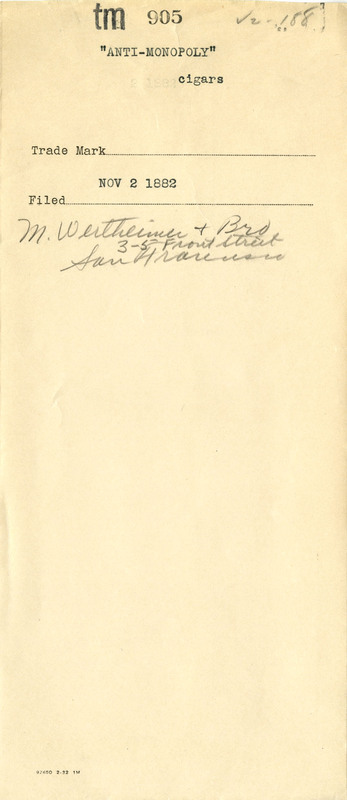 tm 905
"ANTI-MONOPOLY"
cigars
Trade Mark
NOV 2 1882
Filed
M. Wertheimer + Bro
3-5 Front Street
San Francisco
2-22 1M